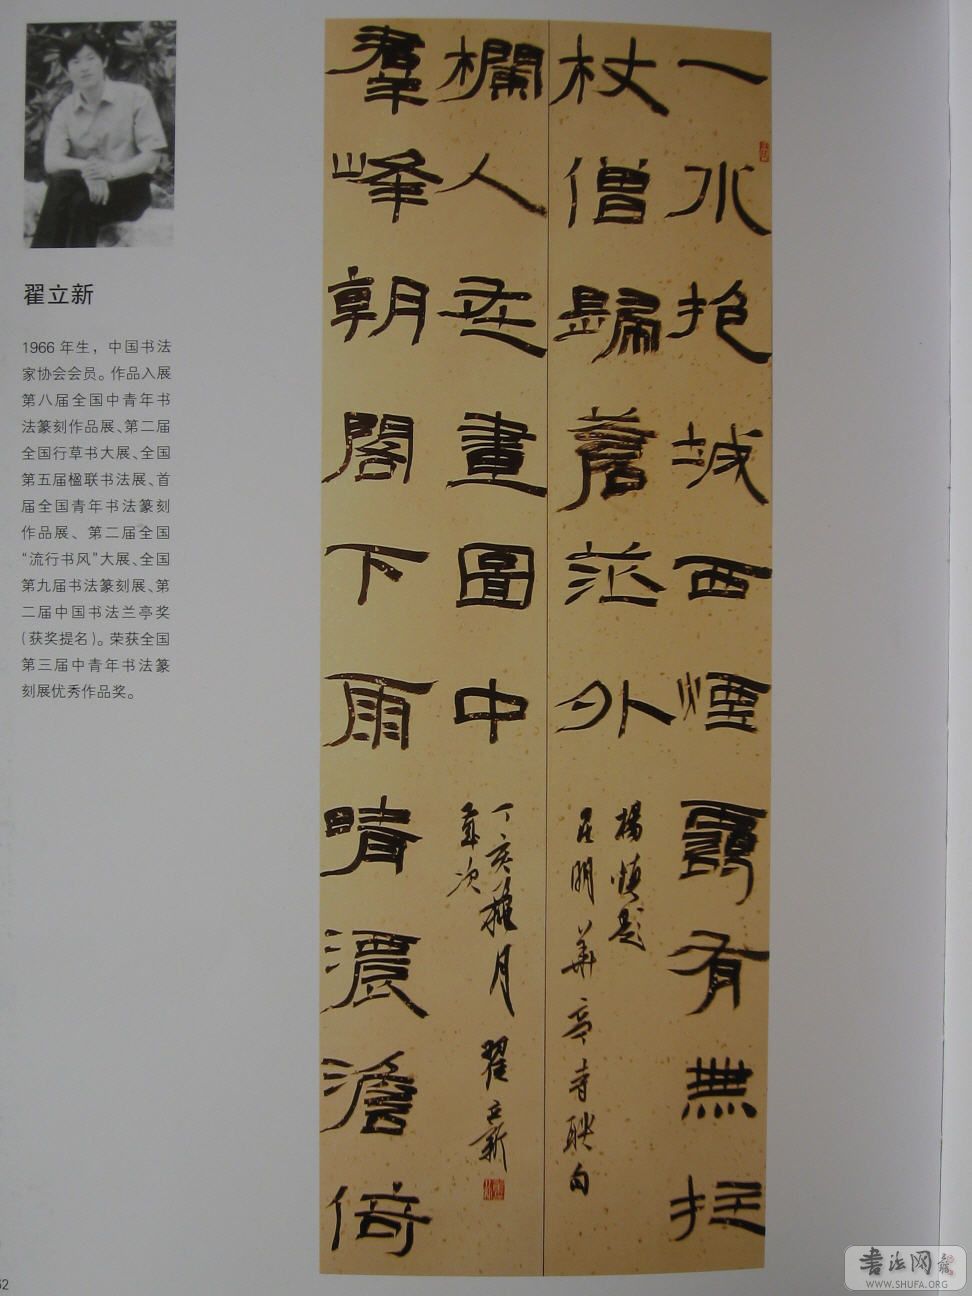 翟立新
1966 年生，中国书法
家协会会员。作品入展
第八届全国中青年书
法篆刻作品展、第二届
全国行草书大展、全国
第五届楹联书法展、首
届全国青年书法篆刻
作品展、第二届全国
“流行书风”大展、全国
第九届书法篆刻展、第
二届中国书法兰亭奖
（获奖提名）。荣获全国
第三届中青年书法篆
刻展优秀作品奖。
一水抱城西煙靄有無拄
杖僧歸蒼茫外
楊慎題
昆明華亭寺聯句
羣峰朝閣下雨晴濃澹倚
欄人在畫圖中
歲次
丁亥 月 翟立新
62
书法网
WWW.SHUFA.ORG